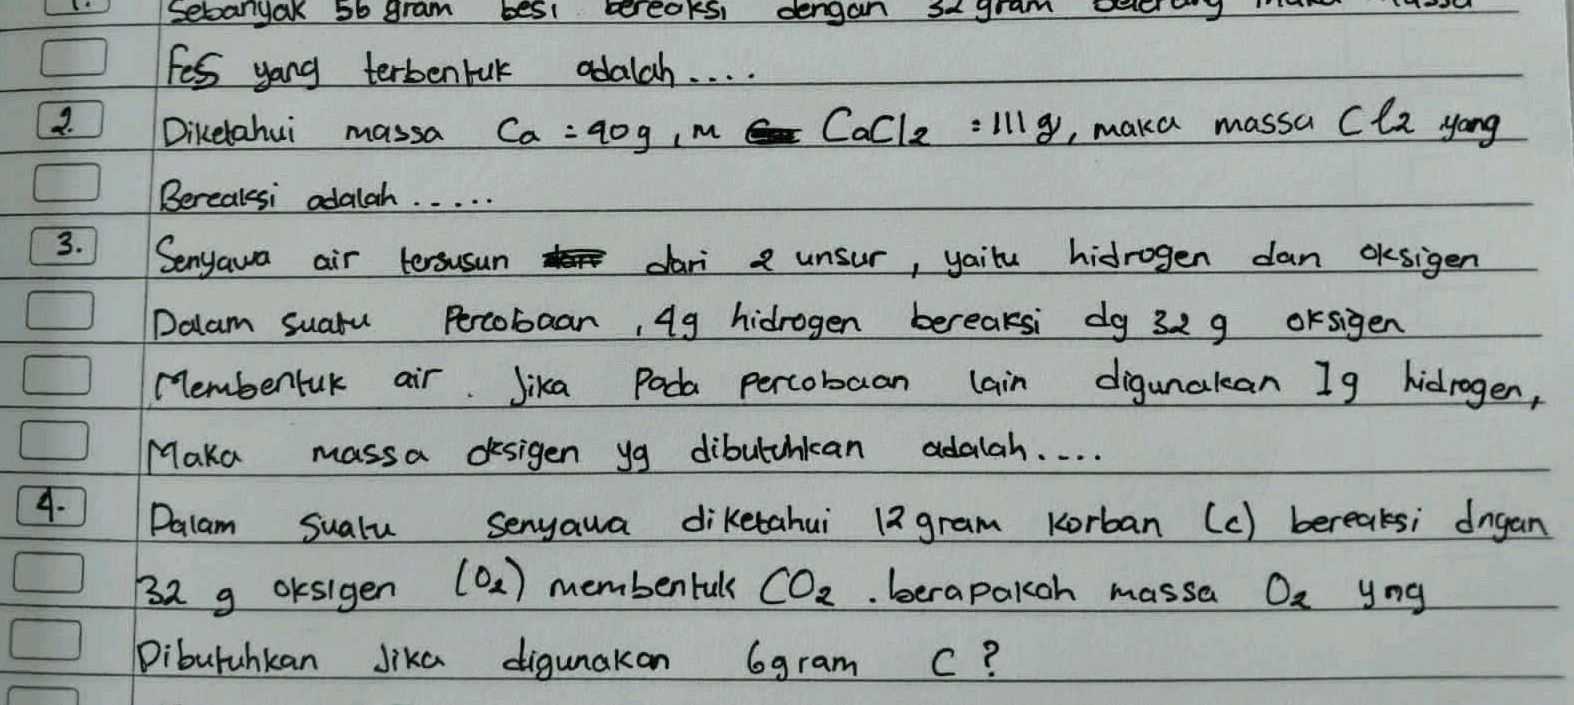 1. Sebanyak 56 gram besi bereaksi dengan 32 gram belerang maka massa
FeS yang terbentuk adalah....
2. Diketahui massa Ca = 40g, m CaCl2 = 111 g, maka massa Cl2 yang
Bereaksi adalah.....
3. Senyawa air tersusun dari 2 unsur, yaitu hidrogen dan oksigen
Dalam suatu Percobaan, 4g hidrogen bereaksi dg 32 g oksigen
Membentuk air. Jika Pada percobaan lain digunakan 1g hidrogen,
Maka massa oksigen yg dibutuhkan adalah....
4. Dalam suatu senyawa diketahui 12 gram Korban (c) bereaksi dngan
32 g oksigen (O2) membentuk CO2. berapakah massa O2 yng
Dibutuhkan Jika digunakan 6 gram C?